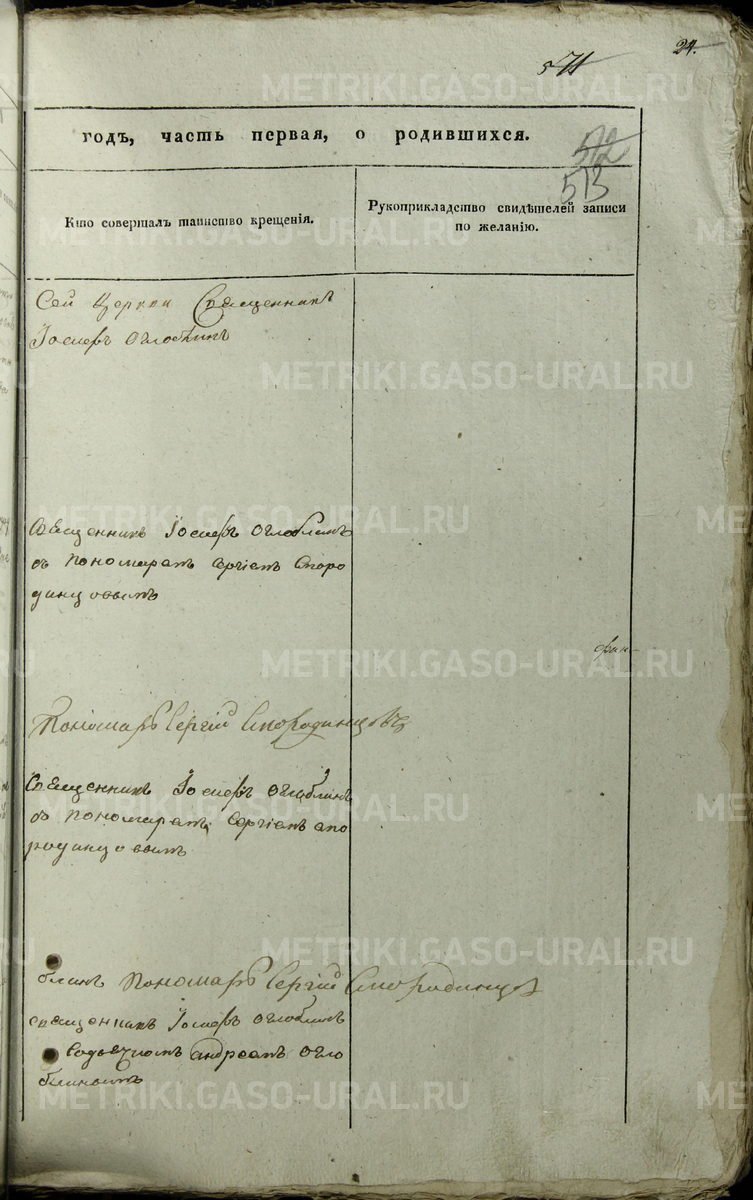 24.
571
годъ, часть первая, о родившихся.
572
513
Кто совершалъ таинство крещенія.
Рукоприкладство свидѣтелей записи
по желанію.
Сей Церкви Священникъ
Іосифъ Оглоблинъ
Священникъ Іосифъ Оглоблинъ
съ пономаремъ Сергіемъ Сморо
динцовымъ
Пономарь Сергій Смородинцовъ
Священникъ Іосифъ Оглоблинъ
съ пономаремъ Сергіемъ Смо
родинцовымъ
блинъ Пономарь Сергій Смородинцов
священникъ Іосифъ Оглоблинъ
андреемъ Огло
блинымъ
METRIKI.GASO-URAL.RU